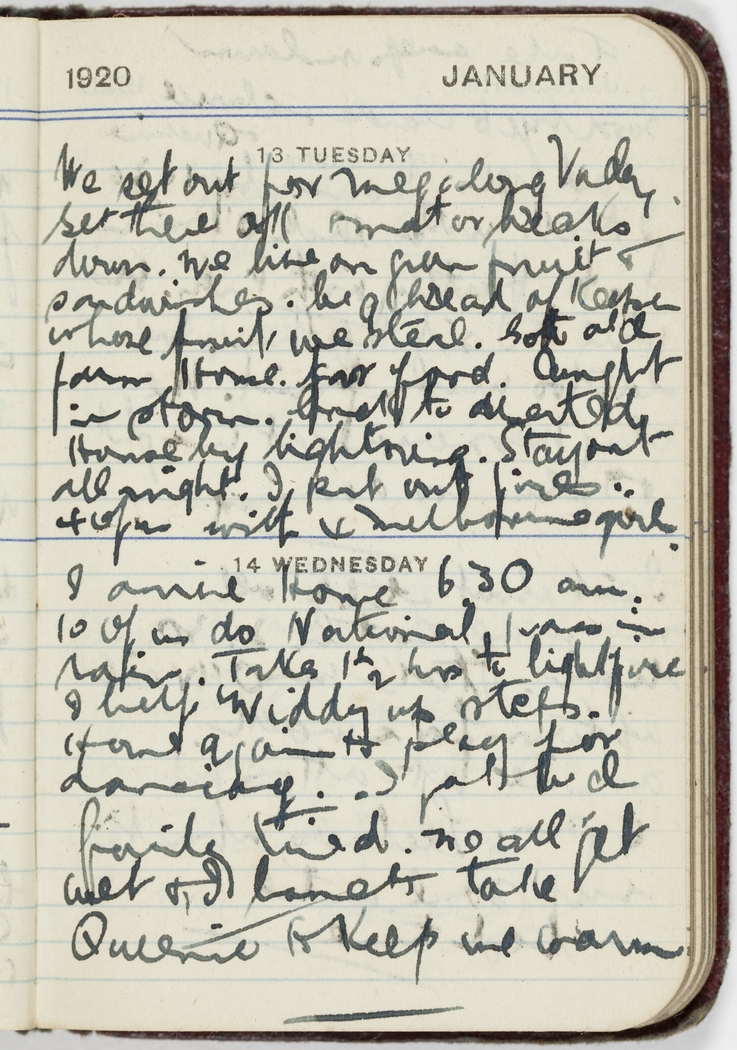 1920 JANUARY
13 TUESDAY
We set out for Megalong Valley
Get there all motor breaks
down. We live on green fruit &
sandwiches. head of Keeper
whose fruit we steal. Got old
farm House. for food. Caught
in storm. to deserted
House by lightning. Stay out
all night. I put out fires.
4 of us with 4 Melbourne girls.
14 WEDNESDAY
I arrive Home 6.30 am.
10 of us do National Pass in
rain. Takes 1½ hrs to light fire
I help Widdy up steps.
Home again to play for
dancing. I get to bed
fairly tired. We all get
wet & I have to take
Queenie to keep me warm